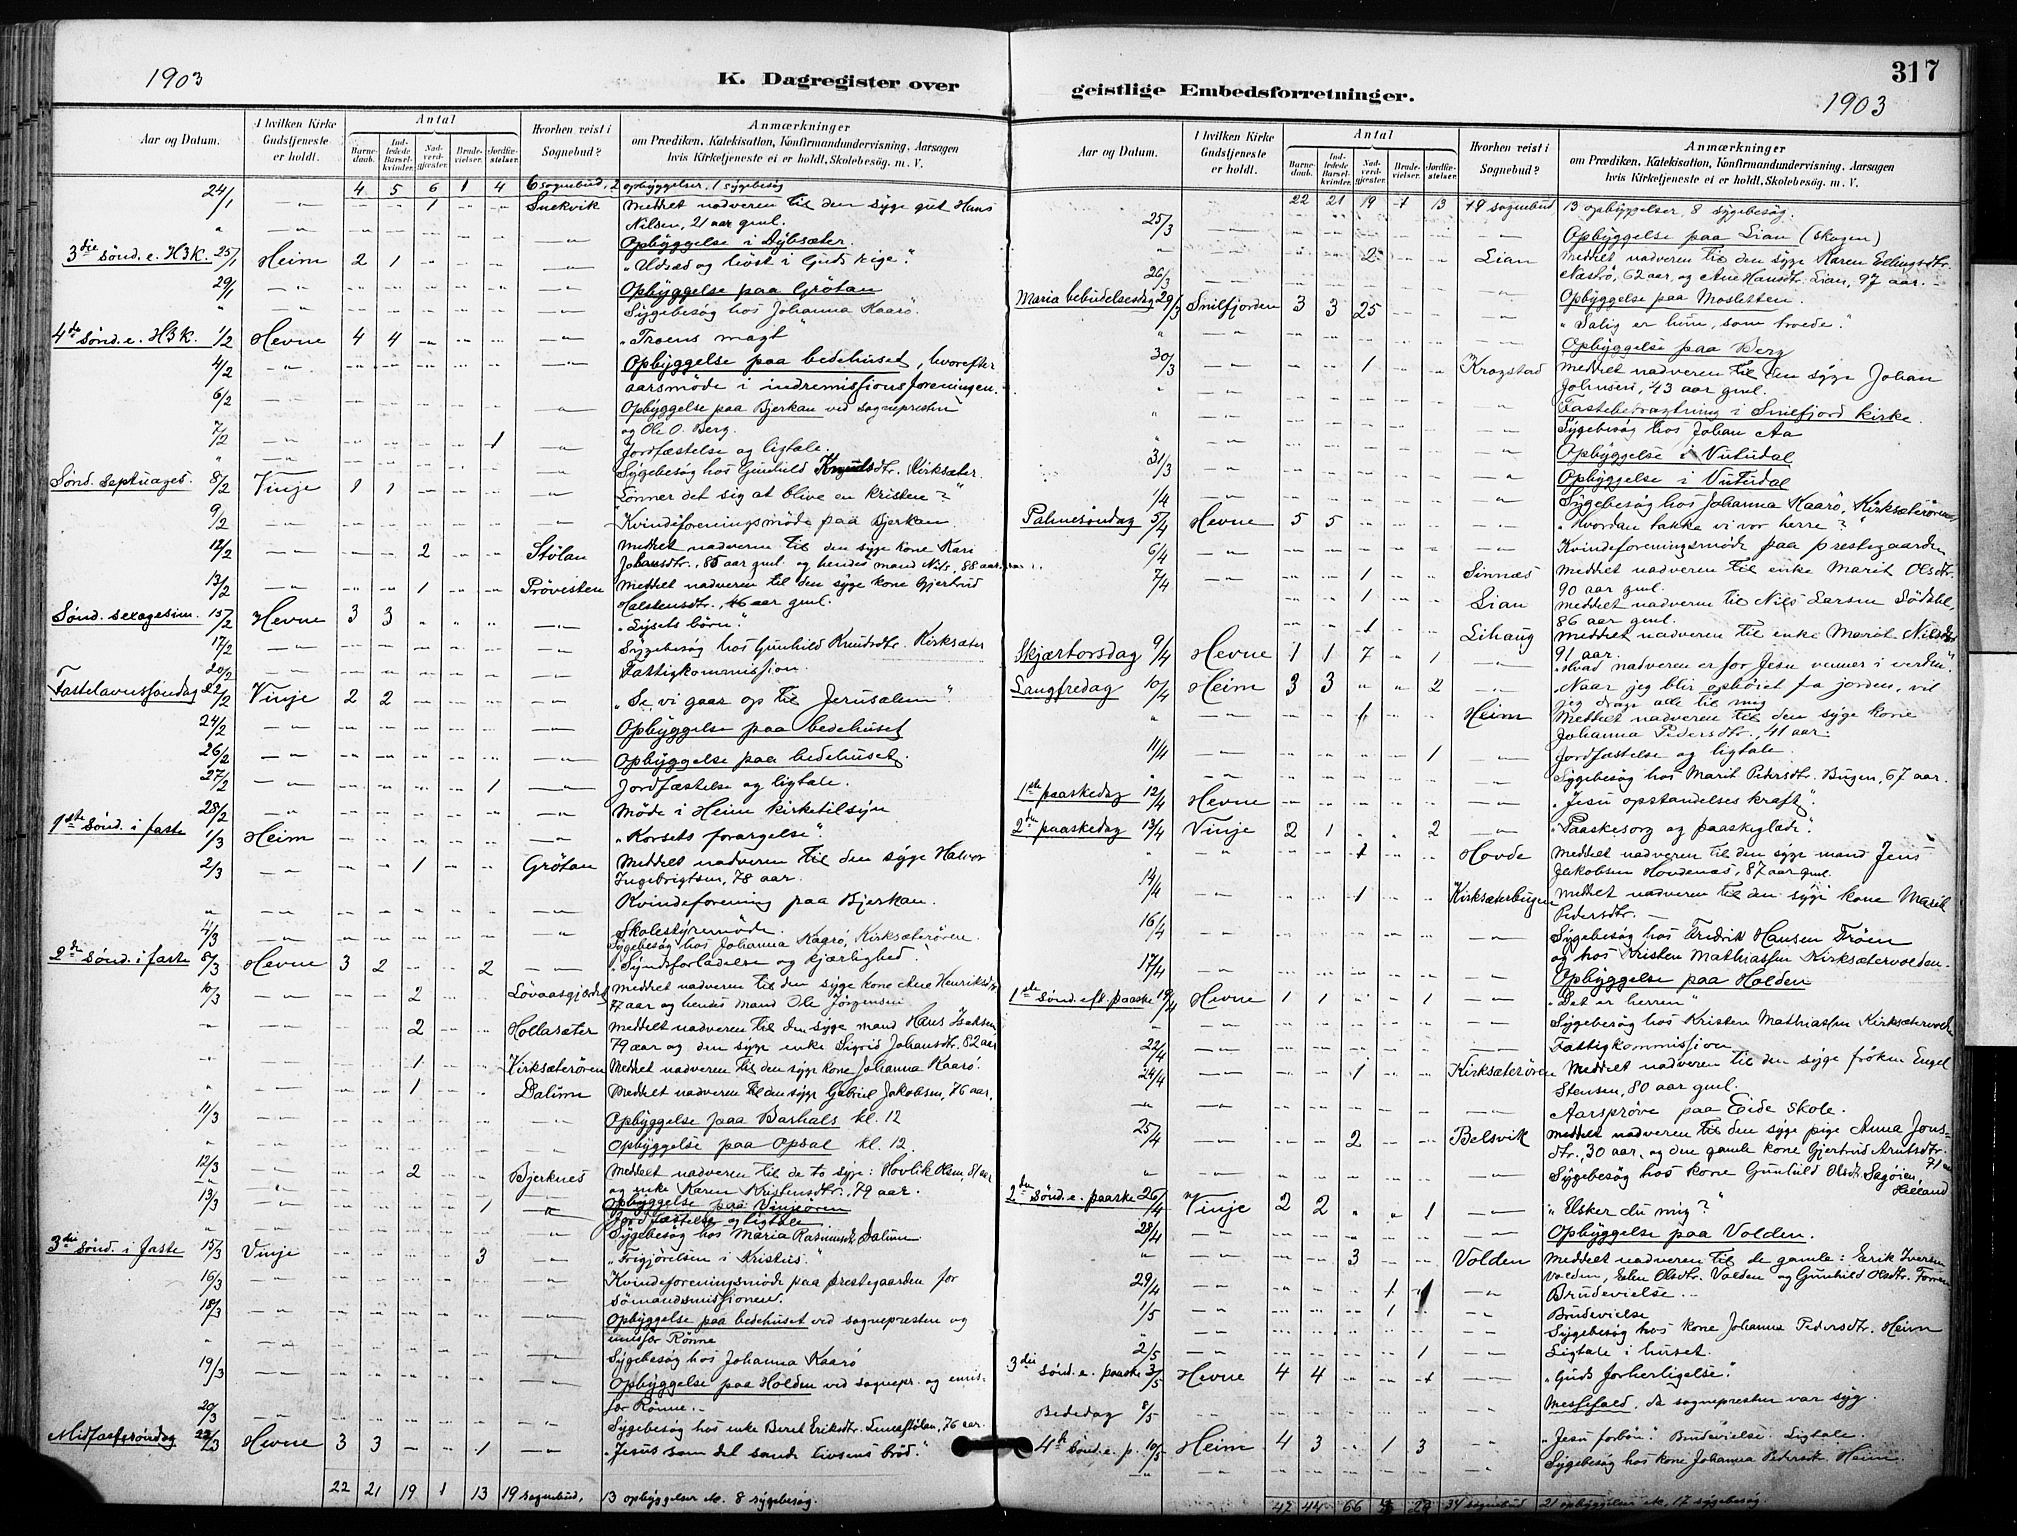 1903
K. Dagregister over
Aar og Datum.
I hvilken Kirke Gudstjeneste er holdt.
Antal
Barnedaab.
Indledede Barselkvinder.
Nadverdgjester.
Brudevielser.
Jordfæstelser.
Hvorhen reist i Sognebud?
Anmærkninger
om Prædiken, Katekisation, Konfirmandundervisning, Aarsagen
hvis Kirketjeneste ei er holdt, Skolebesøg. m. V.
4 5 6 1 4 6 sognebud, 2 opbyggelser, 1 sygebesøg
24/1 1 Snekvik Meddelt nadveren til den syge gut Hans
Nilsen, 21 aar gml.
Opbyggelse i Dybsæter.
3die sønd. e. H3K. 25/1 Heim 2 1 "Udsæd og høst i Guds rige."
29/1 Opbyggelse paa Grötan
Sygebesøg hos Johanna Kaarø.
4de sønd. e. H3K. 1/2 Hevne 4 4 "Troens magt"
4/2 Opbyggelse paa bedehuset, hvorefter
aarsmöde i indremissionsforeningen.
6/2 Opbyggelse paa Bjerkan ved sognepresten
og Ole O. Berg.
7/2 1 Jordfæstelse og ligtale.
Sygebesøg hos Gunhild Knudsdtr. Kirksæter.
Sønd. septuages. 8/2 Vinje 1 1 "Lönner det sig at blive en kristen?"
9/2 Kvindeforeningsmøde paa Bjerkan.
12/2 2 Stölan Meddelt nadveren til den syge kone Kari
Johansdtr., 85 aar gml. og hendes mand Nils, 88 aar.
13/2 1 Prövesten Meddelt nadveren til den syge kone Gjertrud
Halstensdtr., 46 aar gml.
Sønd. sexagesim. 15/2 Hevne 3 3 "Lysets börn."
17/2 Sygebesøg hos Gunhild Knudsdtr. Kirksæter
20/2 Fattigkommission.
Fastelavnssøndag 22/2 Vinje 2 2 "Se, vi gaar op til Jerusalem."
24/2 Opbyggelse paa bedehuset
26/2 Opbyggelse paa bedehuset
27/2 1 Jordfæstelse og ligtale.
28/2 Möde i Heim kirketilsyn
1ste sønd. i faste 1/3 Heim "Korsets forargelse"
2/3 1 Grötan Meddelt nadveren til den syge Halvor
Ingebrigtsen, 78 aar.
Kvindeforening paa Bjerkan.
4/3 Skolestyremöde.
Sygebesøg hos Johanna Kaarø, Kirksæterøren.
2den sønd. i faste 8/3 Hevne 3 2 2 "Syndsforladelse og kjærlighed."
10/3 2 Lövaasgjærdet Meddelt nadveren til den syge kone Ane Henriksdtr.
77 aar og hendes mand Ole Jørgensen
2 Hollasæter Meddelt nadveren til den syge mand Hans Isaksen
79 aar og den syge enke Sigrid Johansdtr. 82 aar
1 Kirksæterøren Meddelt nadveren til den syge kone Johanna Kaarø.
1 Dalum Meddelt nadveren til den syge Gabriel Jakobsen, 76 aar.
11/3 Opbyggelse paa Barhals kl. 12
Opbyggelse paa Opsal kl. 12
12/3 2 Bjerknes Meddelt nadveren til de to syge: Hovlik Olsen, 81 aar
og enke Karen Kristensdtr., 79 aar.
13/3 Opbyggelse paa Vinjeøren
1 Jordfæstelse og ligtale
Sygebesøg hos Maria Rasmusdtr. Dalum
3die sønd. i faste 15/3 Vinje 3 "Frigjørelsen i Kristus."
16/3 Kvindeforeningsmøde paa prestegaarden for
sømandsmissionen.
18/3 Opbyggelse paa bedehuset ved sognepresten og
emissær Rönne
Sygebesøg hos Johanna Kaarø
19/3 Opbyggelse paa Holden ved sognepr. og emissær
Rönne.
20/3 Sygebesøg hos enke Beret Eriksdtr. 76 aar.
Midfastesøndag 22/3 Hevne 3 3 1 "Jesus som det sande livsens bröd."
22 21 19 1 13 19 sognebud, 13 opbyggelser &c. 8 sygebesøg.
geistlige Embedsforretninger.
317
1903
Aar og Datum.
I hvilken Kirke Gudstjeneste er holdt.
Antal
Barnedaab.
Indledede Barselkvinder.
Nadverdgjester.
Brudevielser.
Jordfæstelser.
Hvorhen reist i Sognebud?
Anmærkninger
om Prædiken, Katekisation, Konfirmandundervisning, Aarsagen
hvis Kirketjeneste ei er holdt, Skolebesøg. m. V.
22 21 19 1 13 19 sognebud 13 opbyggelser, 8 sygebesøg.
25/3 Opbyggelse paa Lian (skogen)
2 Lian Meddelt nadveren til den syge Karen Ellingsdtr.
Næsbø, 62 aar og Ane Hansdtr. Lian, 97 aar.
26/3 Opbyggelse paa Mosletten.
Maria bebudelsesdag 29/3 Snilfjorden 3 3 25 "Salig er hun, som troede."
Opbyggelse paa Berg
30/3 1 Krogstad Meddelt nadveren til den syge Johan
Johnsen, 43 aar gml.
Fastebetragtning i Snilfjord kirke.
Sygebesøg hos Johan Aa
Opbyggelse i Vutudal
31/3 Opbyggelse i Vutudal
1/4 Sygebesøg hos Johanna Kaarø, Kirksæterøren
Palmesøndag 5/4 Hevne 5 5 "Hvordan takke vi vor herre?"
6/4 Kvindeforeningsmøde paa prestegaarden
7/4 1 Sinnes Meddelt nadveren til enke Marit Olsdtr.
90 aar gml.
1 Lian Meddelt nadveren til Nils Larsen Södahl,
86 aar gml.
1 Lihaug Meddelt nadveren til enke Marit Nilsdtr.
91 aar.
Skjærtorsdag 9/4 Hevne 1 1 7 1 "Hvad nadveren er for Jesu venner i verden."
Langfredag 10/4 Heim 3 3 2 "Naar jeg blir ophøiet fra jorden, vil
jeg drage alle til mig
1 Heim Meddelt nadveren til den syge kone
Johanna Pedersdtr., 41 aar.
11/4 1 Jordfæstelse og ligtale.
Sygebesøg hos Marit Pedersdtr. Bugen, 67 aar.
1ste paaskedag 12/4 Hevne "Jesu opstandelses kraft".
2den paaskedag 13/4 Vinje 2 1 2 "Paaskesorg og paaskeglæde".
1 Hovde Meddelt nadveren til den syge mand Jens
Jakobsen Hovdenæs, 87 aar gml.
14/4 1 Kirksæterbugen Meddelt nadveren til den syge kone Marit
Pedersdtr.
16/4 Sygebesøg hos Fredrik Hansen Trøen
og hos Kristen Mathiassen Kirksætervolden.
17/4 Opbyggelse paa Holden
1ste sønd. eft. paaske 19/4 Hevne 1 1 1 "Det er herren"
Sygebesøg hos Kristen Mathiassen Kirksætervolden
22/4 Fattigkommission
24/4 1 Kirksæterøren Meddelt nadveren til den syge fröken Engel
Stensen, 80 aar gml.
Aarsprøve paa Eide skole.
25/4 2 Belsvik Meddelt nadveren til den syge pige Anna Jonsdtr.,
30 aar, og den gamle kone Gjertrud Arntsdtr.
71 aar
Sygebesøg hos kone Gunhild Olsdtr. Sagöien,
2den sønd. e. paaske 26/4 Vinje 2 2 1 "Elsker du mig?"
28/4 Opbyggelse paa Volden.
3 Volden Meddelt nadveren til de gamle: Erik Iversen
Volden, Elen Olsdtr. Volden og Gunhild Olsdtr.
29/4 1 Brudevielse
1/5 1 Brudevielse
Sygebesøg hos kone Johanna Pedersdtr. Heim
2/5 1 Ligtale i huset.
3die sønd. e. paaske 3/5 Hevne 4 4 1 "Guds forherligelse".
Bededag 8/5 Messefald, da sognepresten var syg.
4de sønd. e. p. 10/5 Heim 4 3 1 3 "Jesu forbön." Brudevielse. Ligtale.
Sygebesøg hos kone Johanna Pedersdtr. Heim.
47 44 66 34 sognebud 21 opbyggelser &c. 17 sygebesøg.